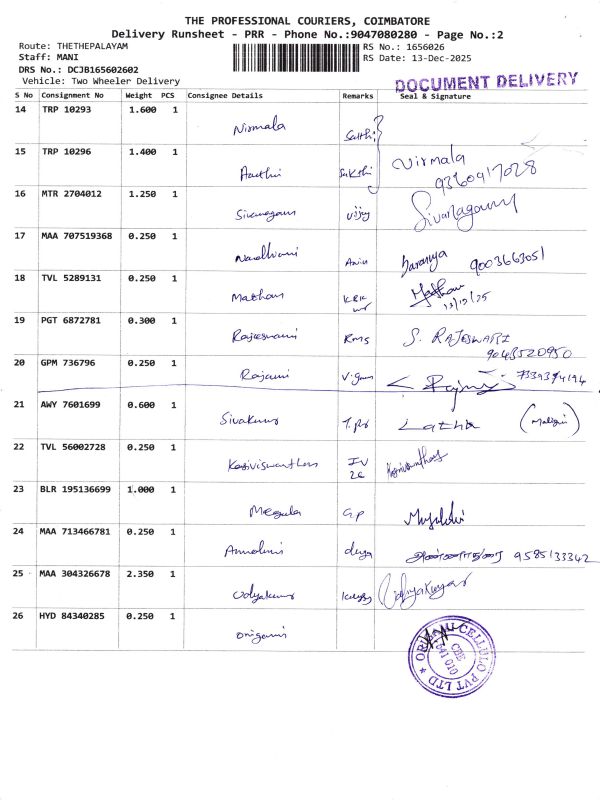 THE PROFESSIONAL COURIERS, COIMBATORE
Delivery Runsheet - PRR - Phone No.:9047080280 - Page No.:2
Route: THETHEPALAYAM
Staff: MANI
DRS No.: DCJB165602602
Vehicle: Two Wheeler Delivery
RS No.: 1656026
RS Date: 13-Dec-2025
DOCUMENT DELIVERY
S No Consignment No Weight PCS Consignee Details Remarks Seal & Signature
14 TRP 10293 1.600 1 Nirmala Sakthi
15 TRP 10296 1.400 1 Aathi Sakthi Nirmala
9360917028
16 MTR 2704012 1.250 1 Vijay
17 MAA 707519368 0.250 1 Saranya 9003663051
18 TVL 5289131 0.250 1
13/12/25
19 PGT 6872781 0.300 1 Rajeswari Rms S. RAJESWARI
9048520950
20 GPM 736796 0.250 1 Rajani
21 AWY 7601699 0.600 1 Sivakumar Latha
22 TVL 56002728 0.250 1 Kasiviswanathan
23 BLR 195136699 1.000 1 Megala G.P
24 MAA 713466781 0.250 1 அண்ணாதுரை 9585133342
25 MAA 304326678 2.350 1 Udhyakumar Udhyakumar
26 HYD 84340285 0.250 1 Origami
ORIGAMI CELLULO PVT LTD
CBE
641 010